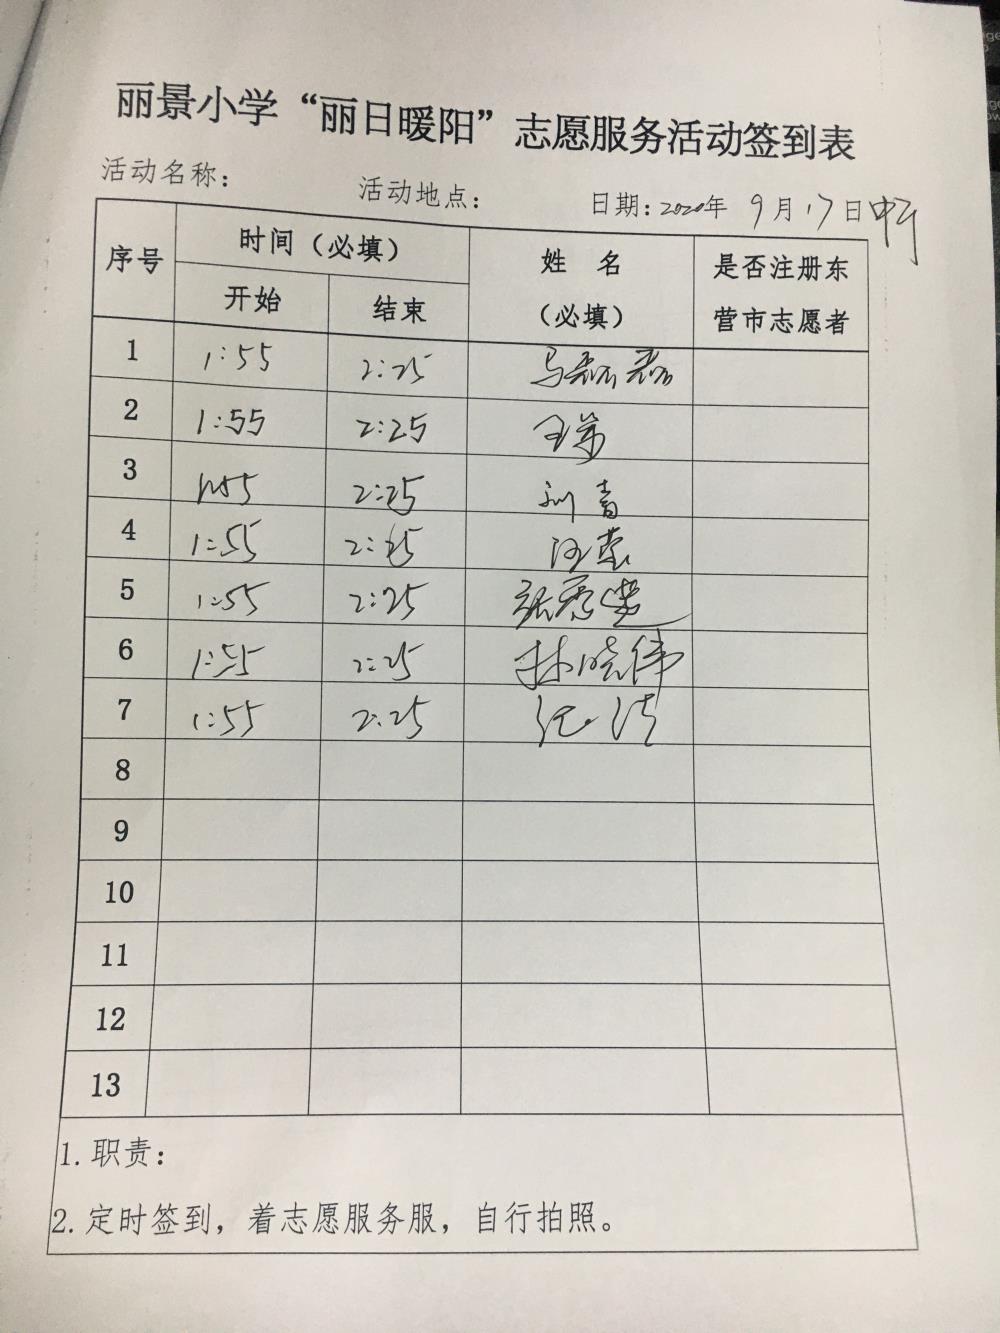 丽景小学“丽日暖阳”志愿服务活动签到表
活动名称： 活动地点： 日期：2020年 9月17日中午
序号 时间（必填） 姓 名 （必填） 是否注册东营市志愿者
开始 结束
1 1:55 2:25 马磊磊
2 1:55 2:25 王芳
3 1:55 2:25 刘青
4 1:55 2:25
5 1:55 2:25
6 1:55 2:25 林晓伟
7 1:55 2:25
8
9
10
11
12
13
1.职责：
2.定时签到，着志愿服务服，自行拍照。